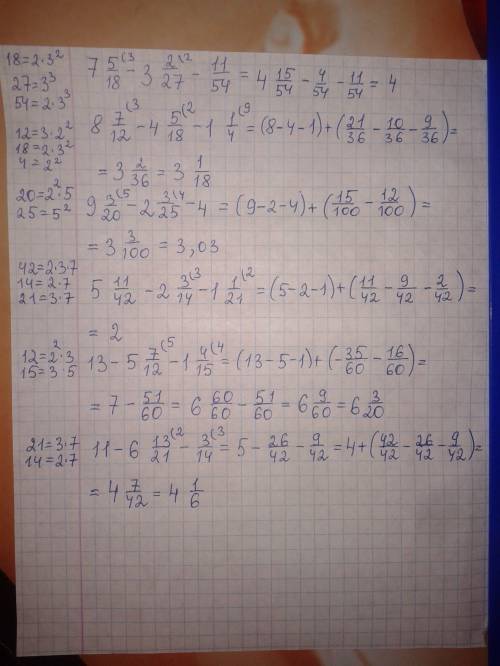 18=2·3²
27=3³
54=2·3³
7 5/18⁽³ - 3 2/27⁽² - 11/54 = 4 15/54 - 4/54 - 11/54 = 4
12=3·2²
18=2·3²
4=2²
8 7/12⁽³ - 4 5/18⁽² - 1 1/4⁽⁹ = (8-4-1)+(21/36 - 10/36 - 9/36)=
= 3 2/36 = 3 1/18
20=2²·5
25=5²
9 3/20⁽⁵ - 2 3/25⁽⁴ - 4 = (9-2-4)+(15/100 - 12/100)=
= 3 3/100 = 3,03
42=2·3·7
14=2·7
21=3·7
5 11/42 - 2 3/14⁽³ - 1 1/21⁽² = (5-2-1)+(11/42 - 9/42 - 2/42)=
= 2
12=2²·3
15=3·5
13 - 5 7/12⁽⁵ - 1 4/15⁽⁴ = (13-5-1)+(-35/60 - 16/60)=
= 7 - 51/60 = 6 60/60 - 51/60 = 6 9/60 = 6 3/20
21=3·7
14=2·7
11 - 6 13/21⁽² - 3/14⁽³ = 5 - 26/42 - 9/42 = 4+(42/42 - 26/42 - 9/42)=
= 4 7/42 = 4 1/6